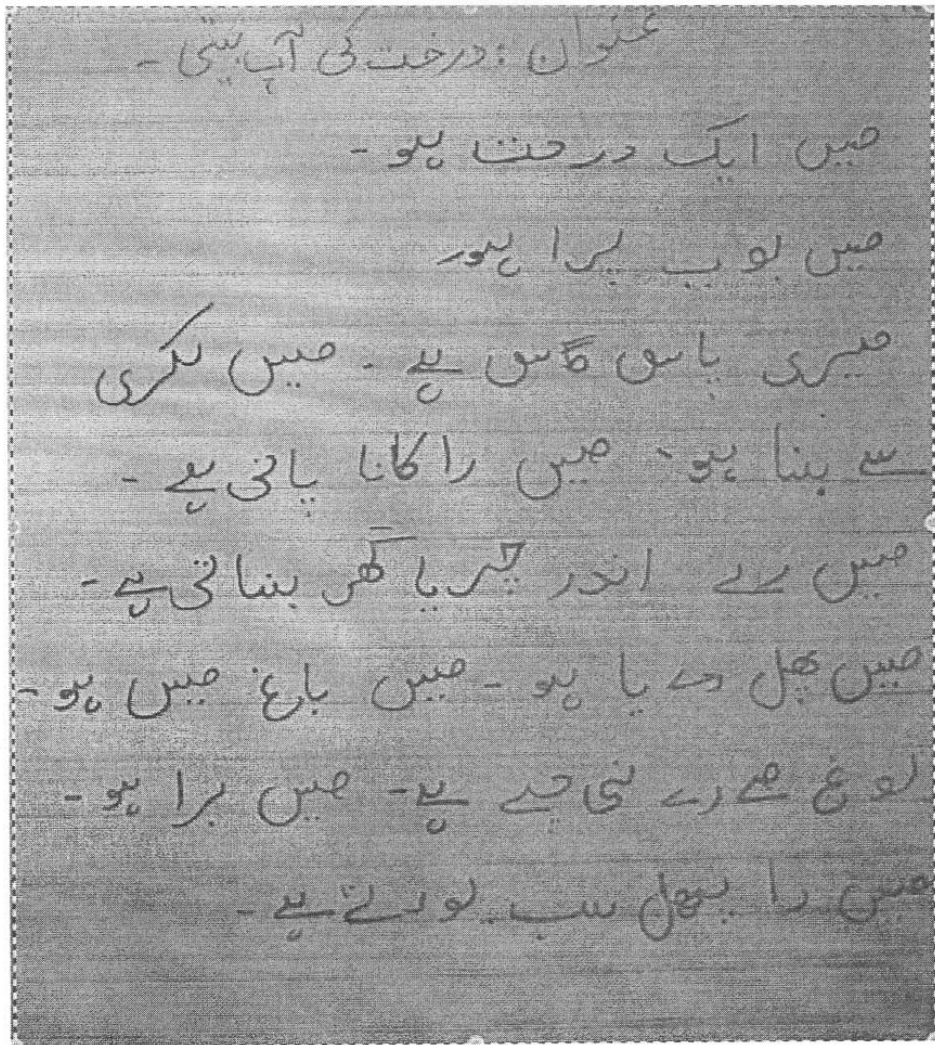 عنوان : درخت کی آپ بیتی ۔
میں ایک درحت ہو ۔
میں بوب برا ہور
میری پاس گاس ہے ۔ میں لکری
سے بنا ہو ۔ میں را کانا پانی ہے ۔
میں رے اندر چریا گھر بناتی ہے ۔
میں پھل دے یا ہو ۔ میں باغ میں ہو ۔
لوغ مے رے نی چے ہے ۔ میں برا ہو ۔
میں را پھل سب تورتے ہے ۔